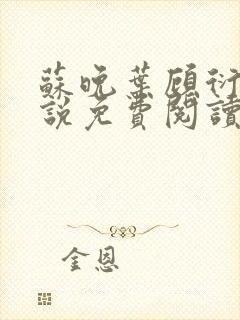 蘇晚葉顾衍
說免費閱讀
金恩